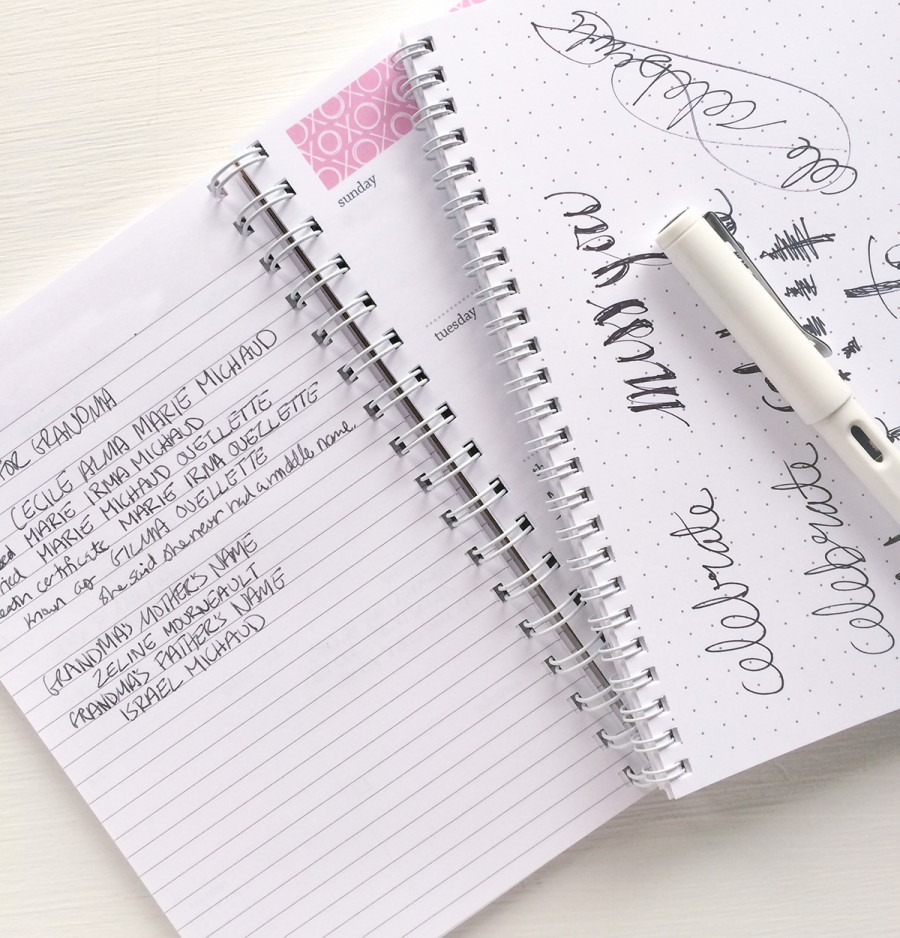 FOR GRANDMA
CECILE ALMA MARIE MICHAUD
MARIE IRMA MICHAUD
MARIE MICHAUD OUELLETTE
death certificate MARIE IRMA OUELLETTE
known as GILMA OUELLETTE
She said she never had a middle name.
GRANDMA'S MOTHER'S NAME
ZELINE MOURNEAULT
GRANDMA'S FATHER'S NAME
ISRAEL MICHAUD
sunday
tuesday
Cele celebrate
miss you
celebrate
celebrate